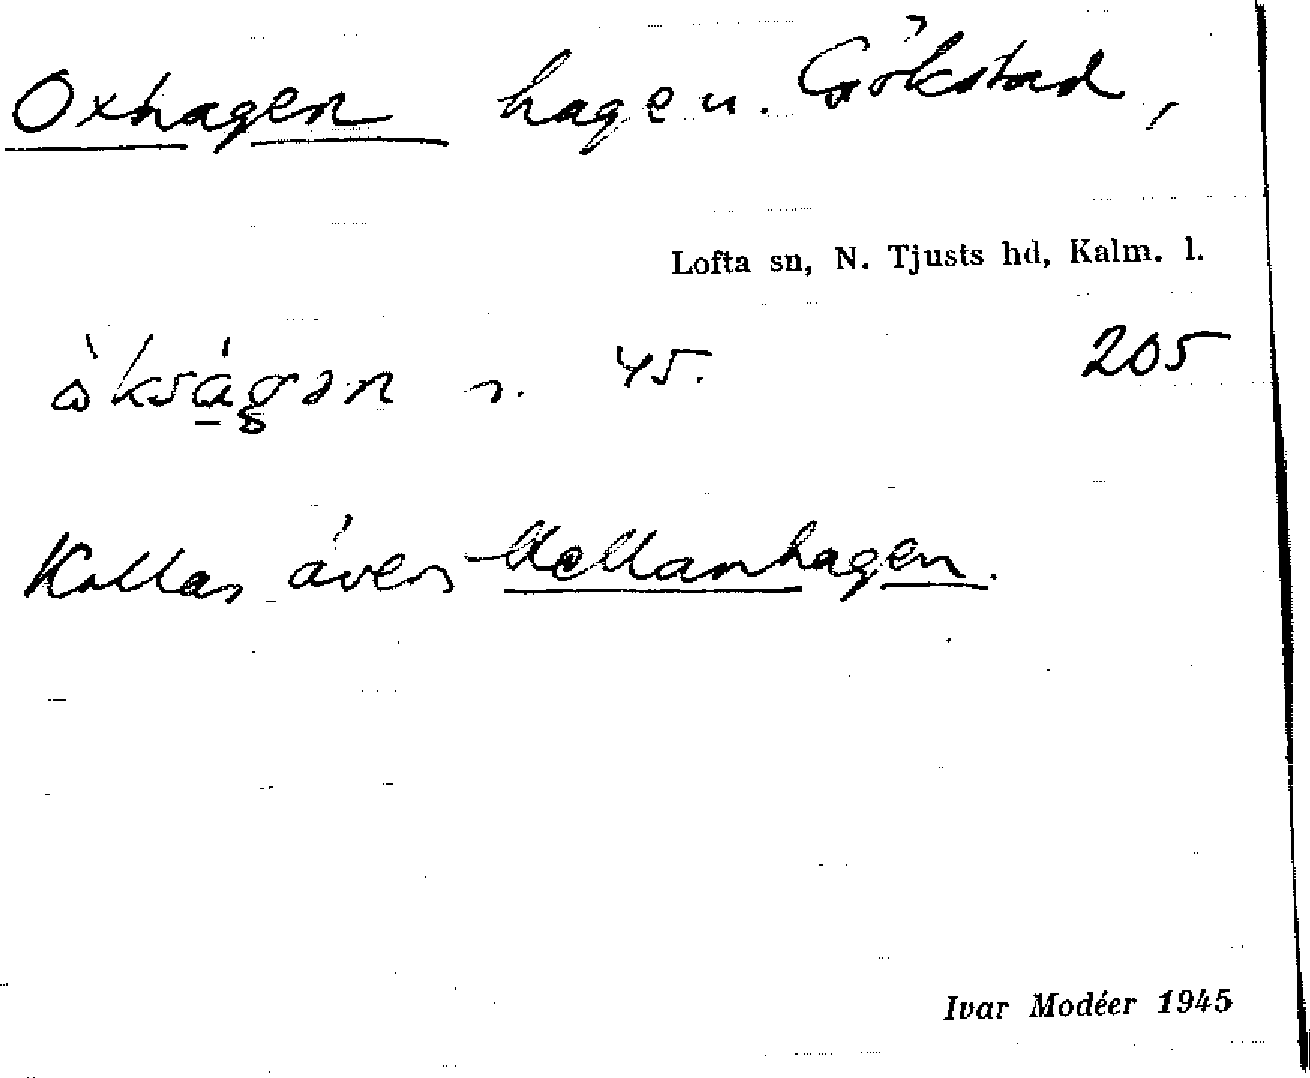 Oxhagen hage u. Gökstad,
Lofta sn, N. Tjusts hd, Kalm. l.
s. 45. 205
Kallas även Mellanhagen.
Ivar Modéer 1945